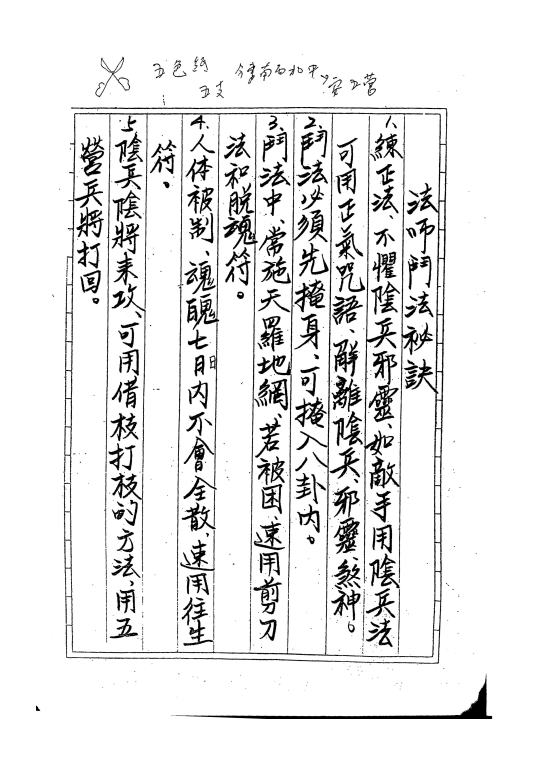 五色
五支
安五營
法師鬥法祕訣
1.練正法、不懼陰兵邪靈、如敵手用陰兵法
可用正氣咒語、解離陰兵、邪靈、煞神。
2.鬥法必須先掩身、可掩入八卦內。
3.鬥法中、常施天羅地網、若被困、速用剪刀
法和脫魂符。
4.人体被制、魂魄七日內不會全散、速用往生
符。
5.陰兵陰將來攻、可用借枝打枝的方法、用五
營兵將打回。